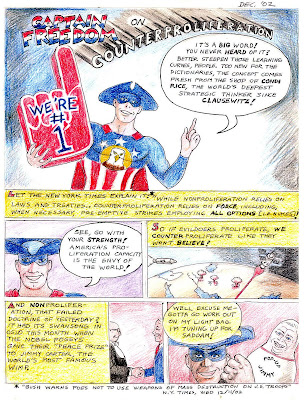 DEC. '02
CAPTAIN
FREEDOM
ON
COUNTERPROLIFERATION
WE'RE
#1
IT'S A BIG WORD!
YOU NEVER HEARD OF IT?
BETTER STEEPEN THOSE LEARNING
CURVES, PEOPLE. TOO NEW FOR THE
DICTIONARIES, THE CONCEPT COMES
FRESH FROM THE SHOP OF CONDI
RICE, THE WORLD'S DEEPEST
STRATEGIC THINKER SINCE
CLAUSEWITZ!
LET THE NEW YORK TIMES EXPLAIN IT:* WHILE NONPROLIFERATION RELIES ON
LAWS AND TREATIES, COUNTERPROLIFERATION RELIES ON FORCE, INCLUDING,
WHEN NECESSARY, PRE-EMPTIVE STRIKES EMPLOYING ALL OPTIONS (I.E. NUKES)
SEE, GO WITH
YOUR STRENGTH!
AMERICA'S PRO-
LIFERATION CAPACITY
IS THE ENVY OF
THE WORLD!
SO IF EVILDOERS PROLIFERATE, WE
COUNTERPROLIFERATE LIKE THEY
WON'T BELIEVE!
AND NONPROLIFER-
ATION, THAT FAILED
DOCTRINE OF YESTERDAY?
IT HAD ITS SWANSONG IN
OSLO THIS MONTH WHEN
THE NOBEL FOGEYS
GAVE THEIR "PEACE PRIZE"
TO JIMMY CARTER, THE
WORLD'S MOST FAMOUS
WIMP.
WELL, EXCUSE ME-
GOTTA GO WORK OUT
ON MY LIGHT BAG.
I'M TUNING UP FOR
SADDAM!
POOR
JIMMY
* "BUSH WARNS FOES NOT TO USE WEAPONS OF MASS DESTRUCTION ON U.S. TROOPS"
N.Y. TIMES, WED 12/11/02